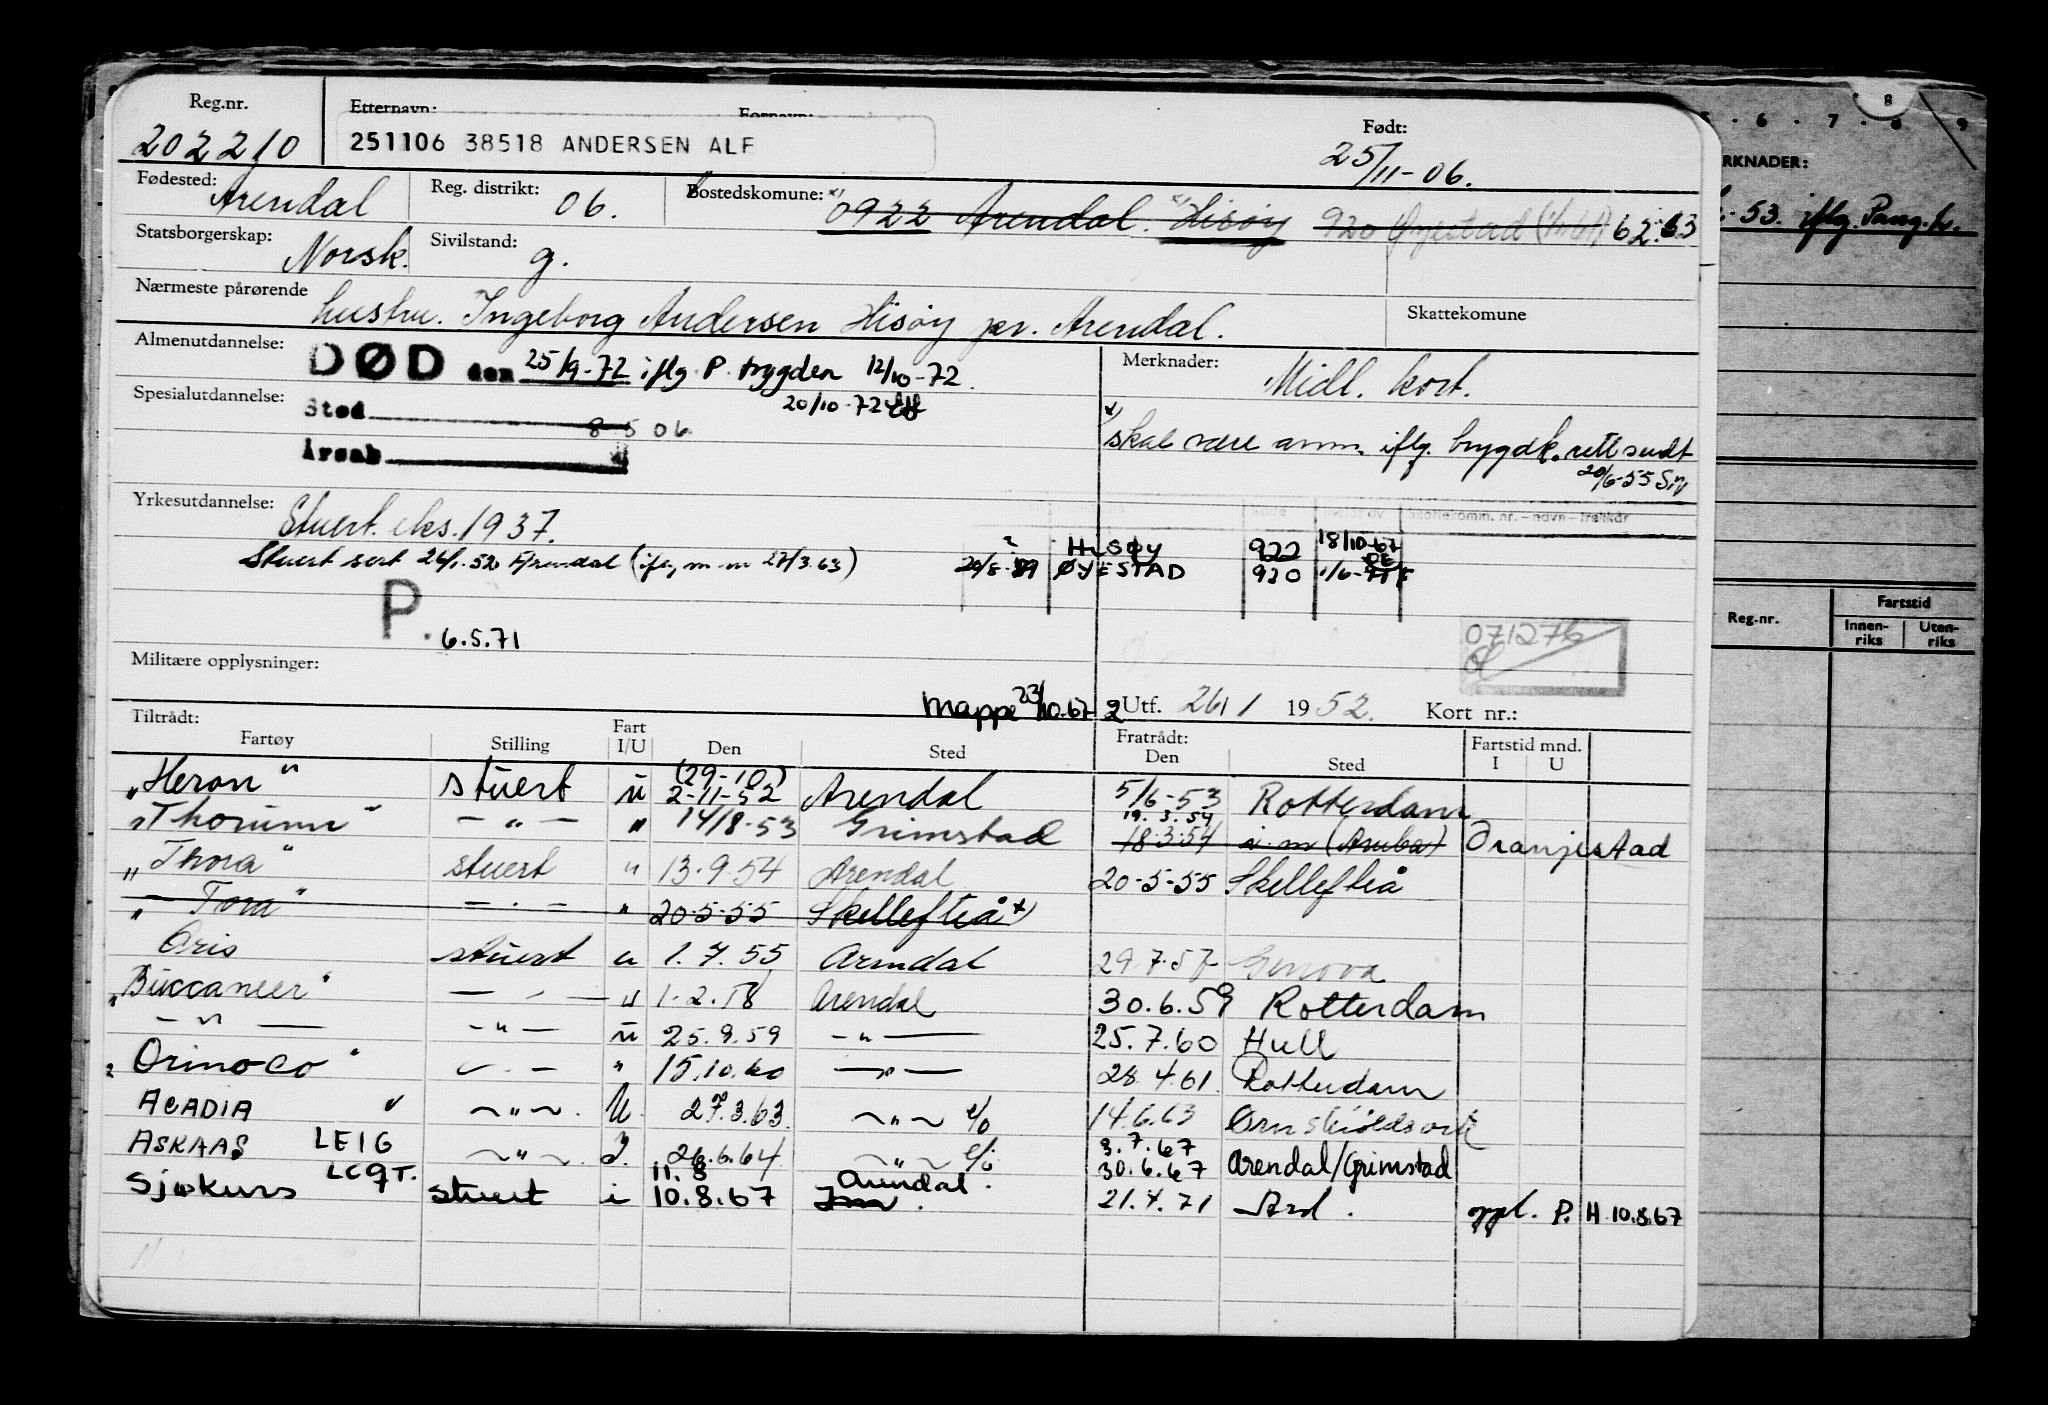 Reg.nr. Etternavn: Fornavn: Født:
202210 251106 38518 ANDERSEN ALF 25/11-06.
Fødested: Arendal Reg. distrikt: 06. Bostedskomune: x) 0922 Arendal. x) Hisøy 920 Øyestad 62.63
Statsborgerskap: Norsk. Sivilstand: g.
Nærmeste pårørende hustru. Ingeborg Andersen Hisøy pr. Arendal. Skattekomune
Almenutdannelse: DØD den 25/9-72 iflg P. trygden 12/10-72. Merknader: Midl. kort.
20/10-72
Spesialutdannelse: Sted 8 5 06 x) skal være ann. iflg. trygdk. rett sendt
20/6-55
Årsak
Yrkesutdannelse: Stuert. eks. 1937.
Skattekomm. nr. – navn – trekkår
HISØY 922 18/10-67
Stuert sert 26/1.52 Arendal (iflg m-m 27/3.63) ØYESTAD 920 1/6-71
P. 6.5.71
071276
Militære opplysninger:
Mappe 23/10.67 2 Utf. 26/1 1952. Kort nr.:
Tiltrådt: Fratrådt: Fartstid mnd.
Fartøy Stilling Fart I/U Den Sted Den Sted I U
"Heron" stuert u (29-10) 2-11-52 Arendal 5/6-53 Rotterdam
"Thorunn" — " — " 14/8-53 Grimstad 19.3.54 18.3.54 i.m (Aruba) Oranjestad
"Thora" stuert " 13.9.54 Arendal 20-5-55 Skellefteå
" Tora" — " — " 20.5.55 Skellefteå x)
Oris stuert u 1.7.55 Arendal 29.7.57 Genova
"Buccaneer" — " — u 1.2.58 Arendal 30.6.59 Rotterdam
— " — — " — u 25.9.59 — " — 25.7.60 Hull
"Orinoco" — " — " 15.10.60 — " — 28.4.61. Rotterdam
ACADIA — " — . U. 27.3.63. — " — e/o 14.6.63 Ørnskiøldsvik
ASKAAS LEIG — " — . I. 26.6.64 — " — e/o 3.7.67 30.6.67 Arendal/Grimstad
Sjøkurs LCQT. stuert i 11.8 10.8.67 Arendal. 21.4.71 Ard. oppl. P. H 10.8.67
8
5 . 6 . 7 . 8 . 9
RKNADER:
- 53. iflg. Pass.k.
Reg.nr. Fartstid
Innen-riks Uten-riks